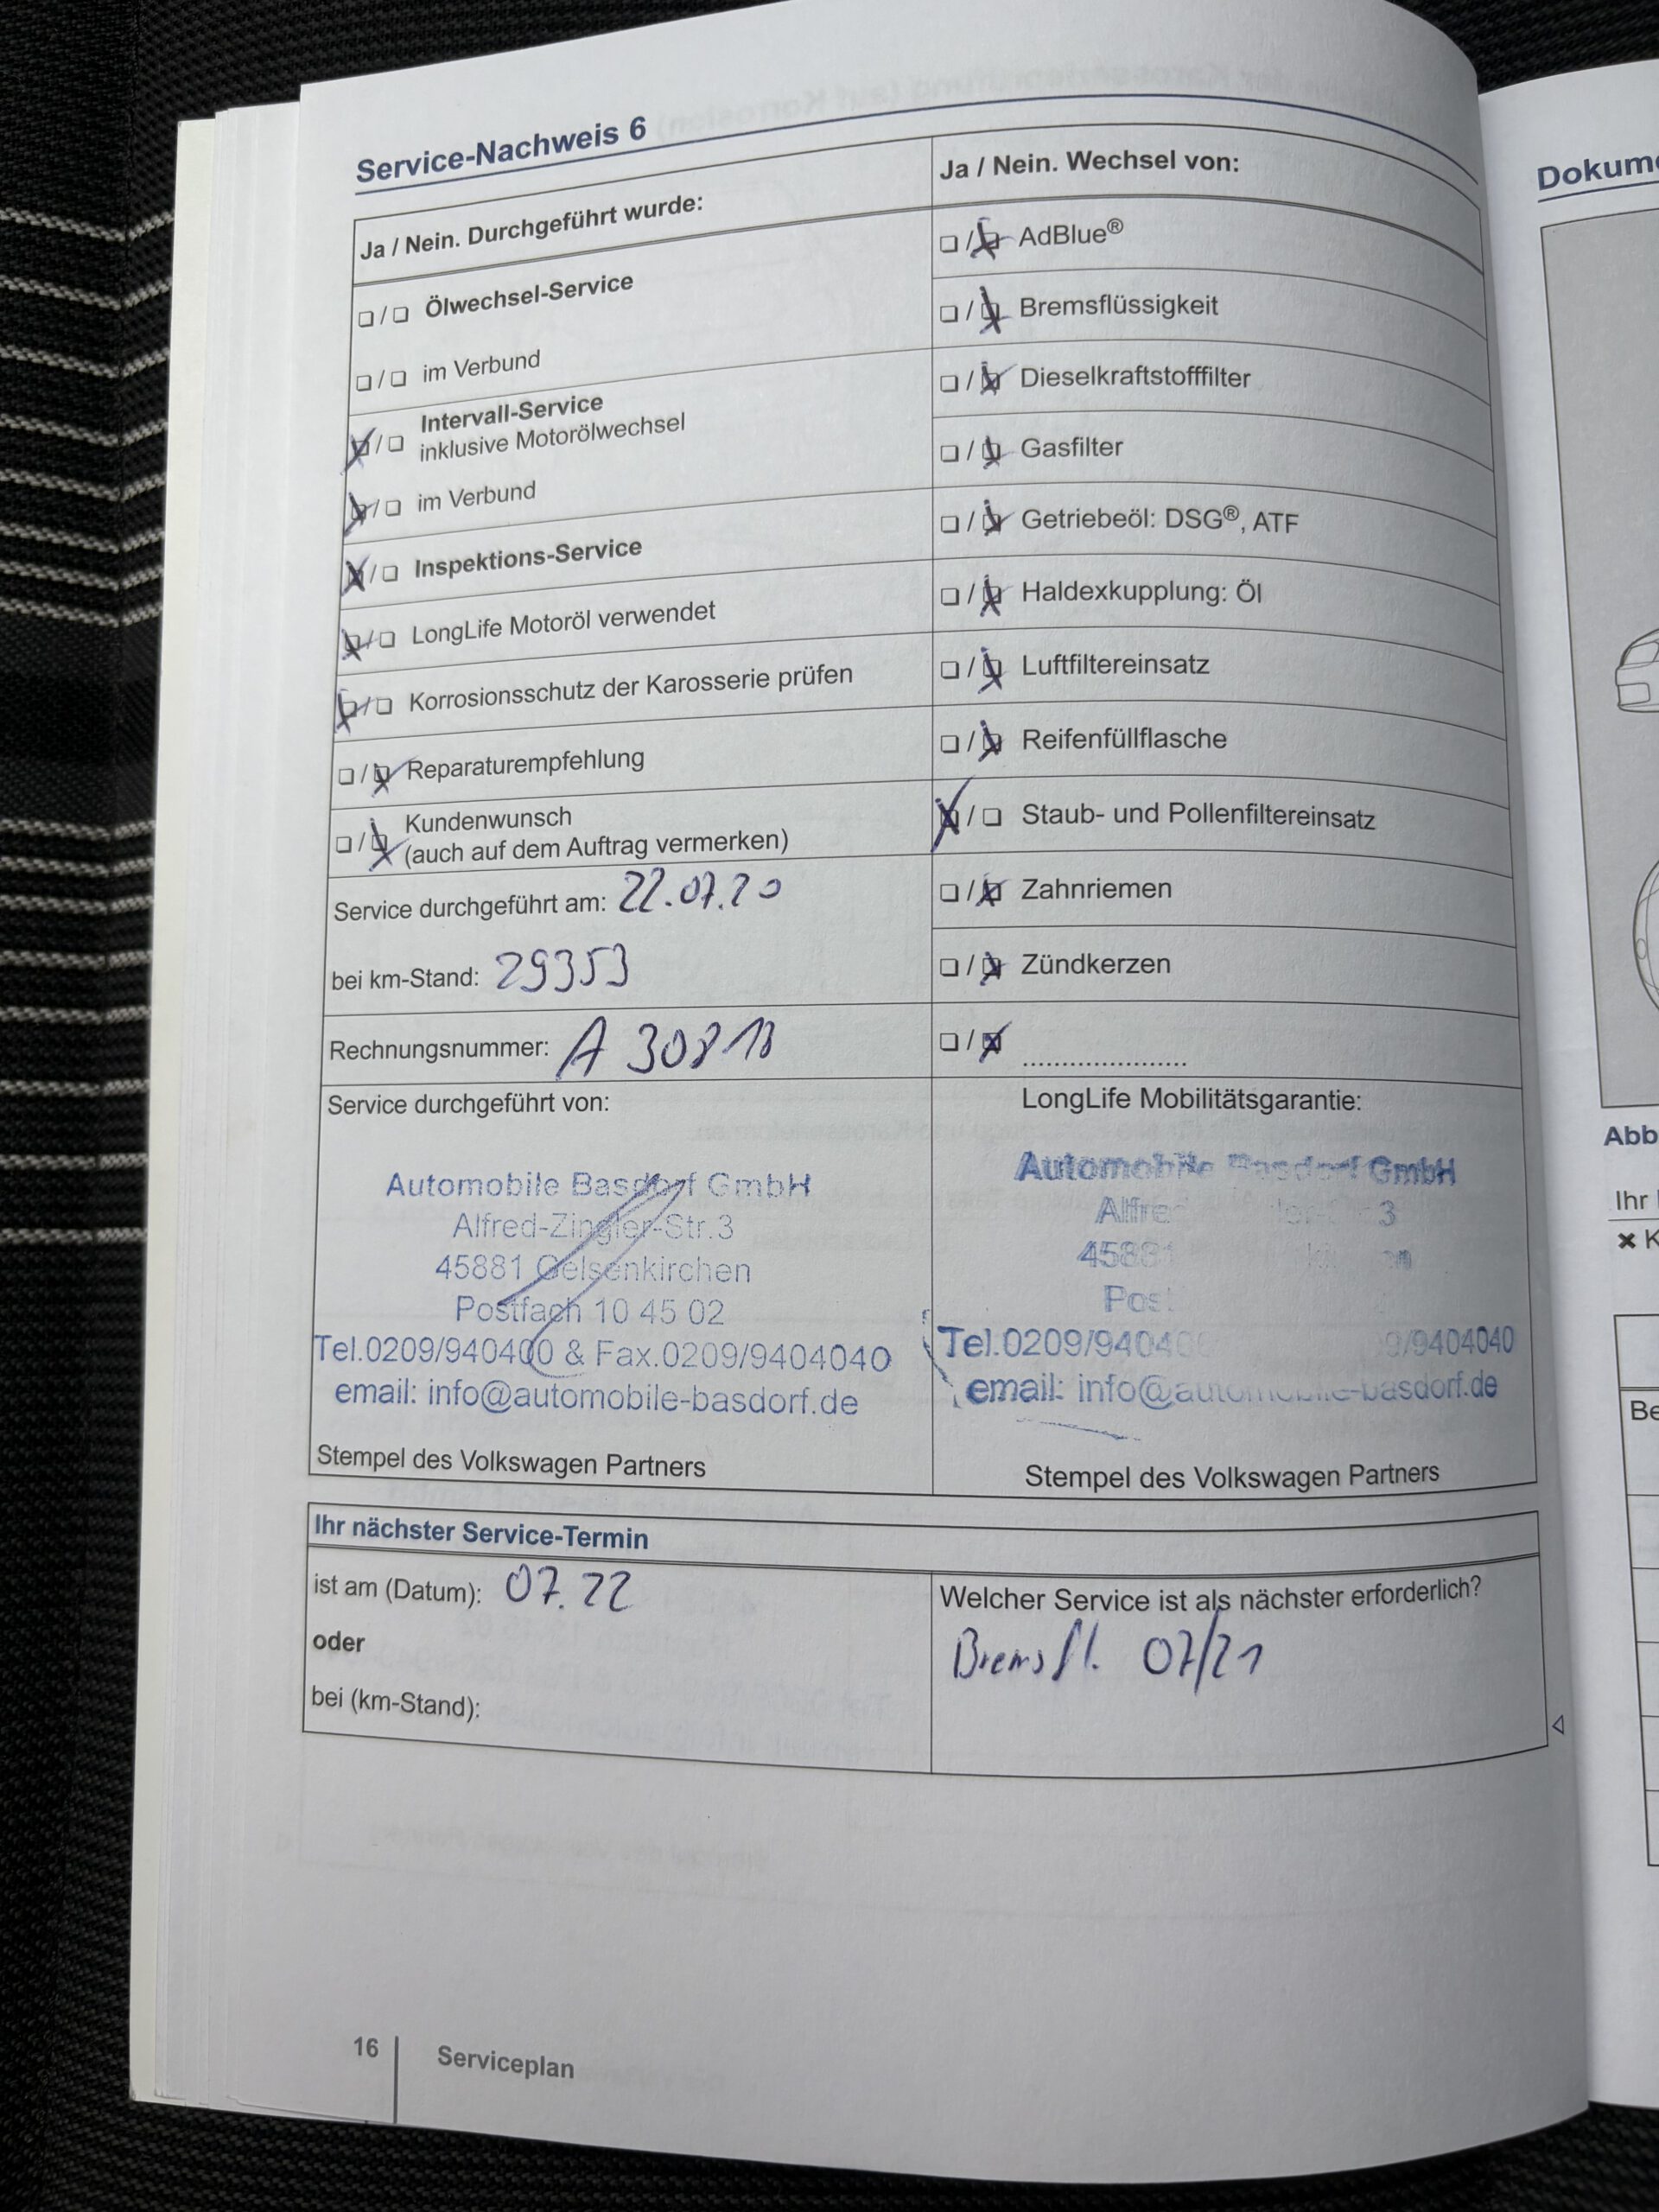 Service-Nachweis 6
Ja / Nein. Durchgeführt wurde:
❏ / ❏ Ölwechsel-Service
❏ / ❏ im Verbund
❏ / ❏ Intervall-Service
inklusive Motorölwechsel
❏ / ❏ im Verbund
❏ / ❏ Inspektions-Service
❏ / ❏ LongLife Motoröl verwendet
❏ / ❏ Korrosionsschutz der Karosserie prüfen
❏ / ❏ Reparaturempfehlung
❏ / ❏ Kundenwunsch
(auch auf dem Auftrag vermerken)
Service durchgeführt am: 22.07.20
bei km-Stand: 29353
Rechnungsnummer: A 30818
Ja / Nein. Wechsel von:
❏ / ❏ AdBlue®
❏ / ❏ Bremsflüssigkeit
❏ / ❏ Dieselkraftstofffilter
❏ / ❏ Gasfilter
❏ / ❏ Getriebeöl: DSG®, ATF
❏ / ❏ Haldexkupplung: Öl
❏ / ❏ Luftfiltereinsatz
❏ / ❏ Reifenfüllflasche
❏ / ❏ Staub- und Pollenfiltereinsatz
❏ / ❏ Zahnriemen
❏ / ❏ Zündkerzen
❏ / ❏ ......................
Service durchgeführt von:
Automobile Basdorf GmbH
Alfred-Zingler-Str.3
45881 Gelsenkirchen
Postfach 10 45 02
Tel.0209/940400 & Fax.0209/9404040
email: info@automobile-basdorf.de
Stempel des Volkswagen Partners
LongLife Mobilitätsgarantie:
Automobile Basdorf GmbH
3
45881
Tel.0209/940400 9/9404040
email: info@automobile-basdorf.de
Stempel des Volkswagen Partners
Ihr nächster Service-Termin
ist am (Datum): 07.22
oder
bei (km-Stand):
Welcher Service ist als nächster erforderlich?
Bremsfl. 07/21
16 Serviceplan
Dokum
Abb
Ihr
Be